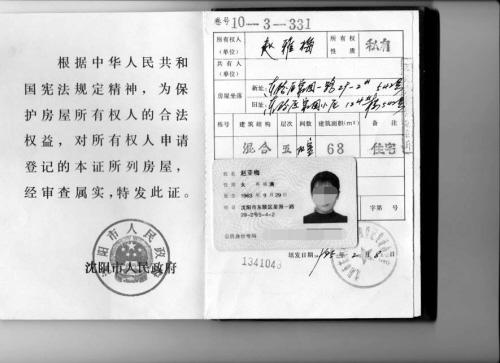 根据中华人民共和
国宪法规定精神，为保
护房屋所有权人的合法
权益，对所有权人申请
登记的本证所列房屋，
经审查属实，特发此证。
沈阳市人民政府
沈阳市人民政府
卷号 10-3-331
所有权人
(单位)
赵雅梅
所有权
性质
私有
共有人
(单位)
房屋坐落
新址:
旧址:
栋号 建筑结构 层次 间数 建筑面积(m²)
混合 五 68 住宅
姓名 赵亚梅
性别 女 民族 满
出生 1963 年 9 月 29 日
住址 沈阳市东陵区
29-2号5-4-2
公民身份号码
字第 号
填发日期 195 年 2 月 8 日
1341043